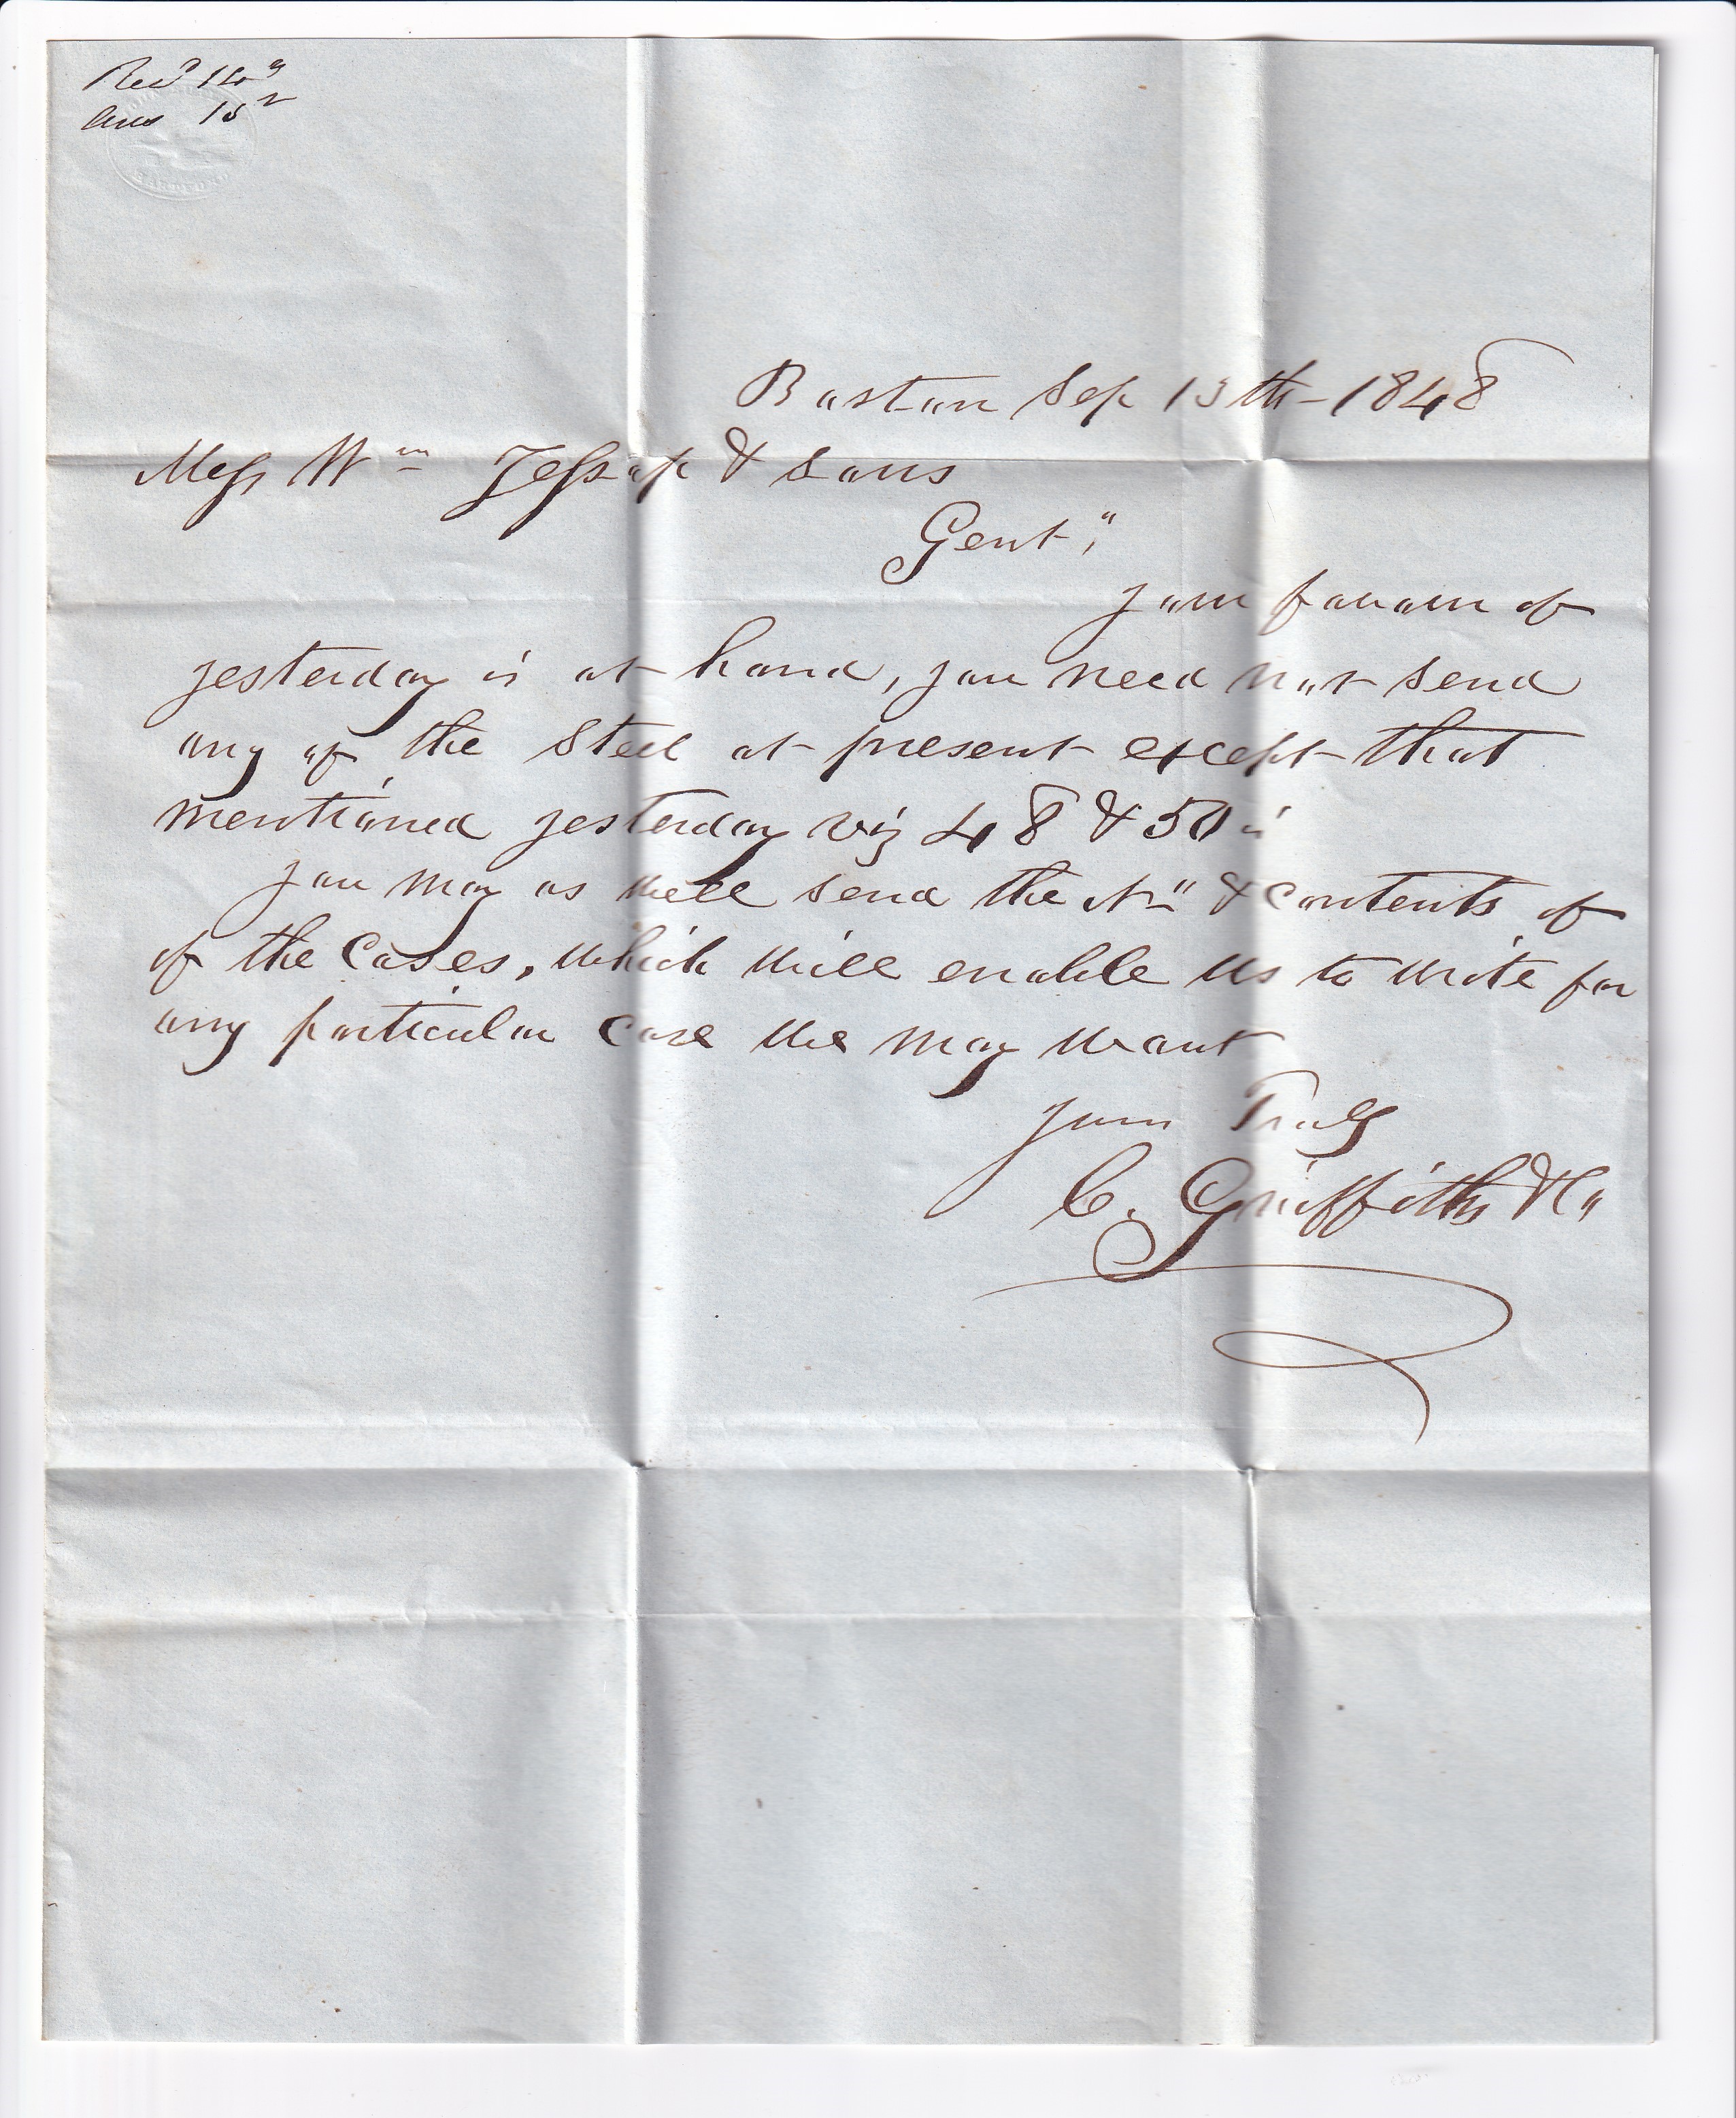 Recd 14th
Ans 15
HARTFORD
Boston Sep 13th - 1848
Mess Wm Jessop & Sons
Gent"
Your favour of
yesterday is at hand, you need not send
any of the Steel at present except that
mentioned yesterday viz 48 & 50 in
You may as well send the No & Contents of
of the Cases, which will enable us to write for
any particular Case we may want
Yours Truly
C. Griffith & Co